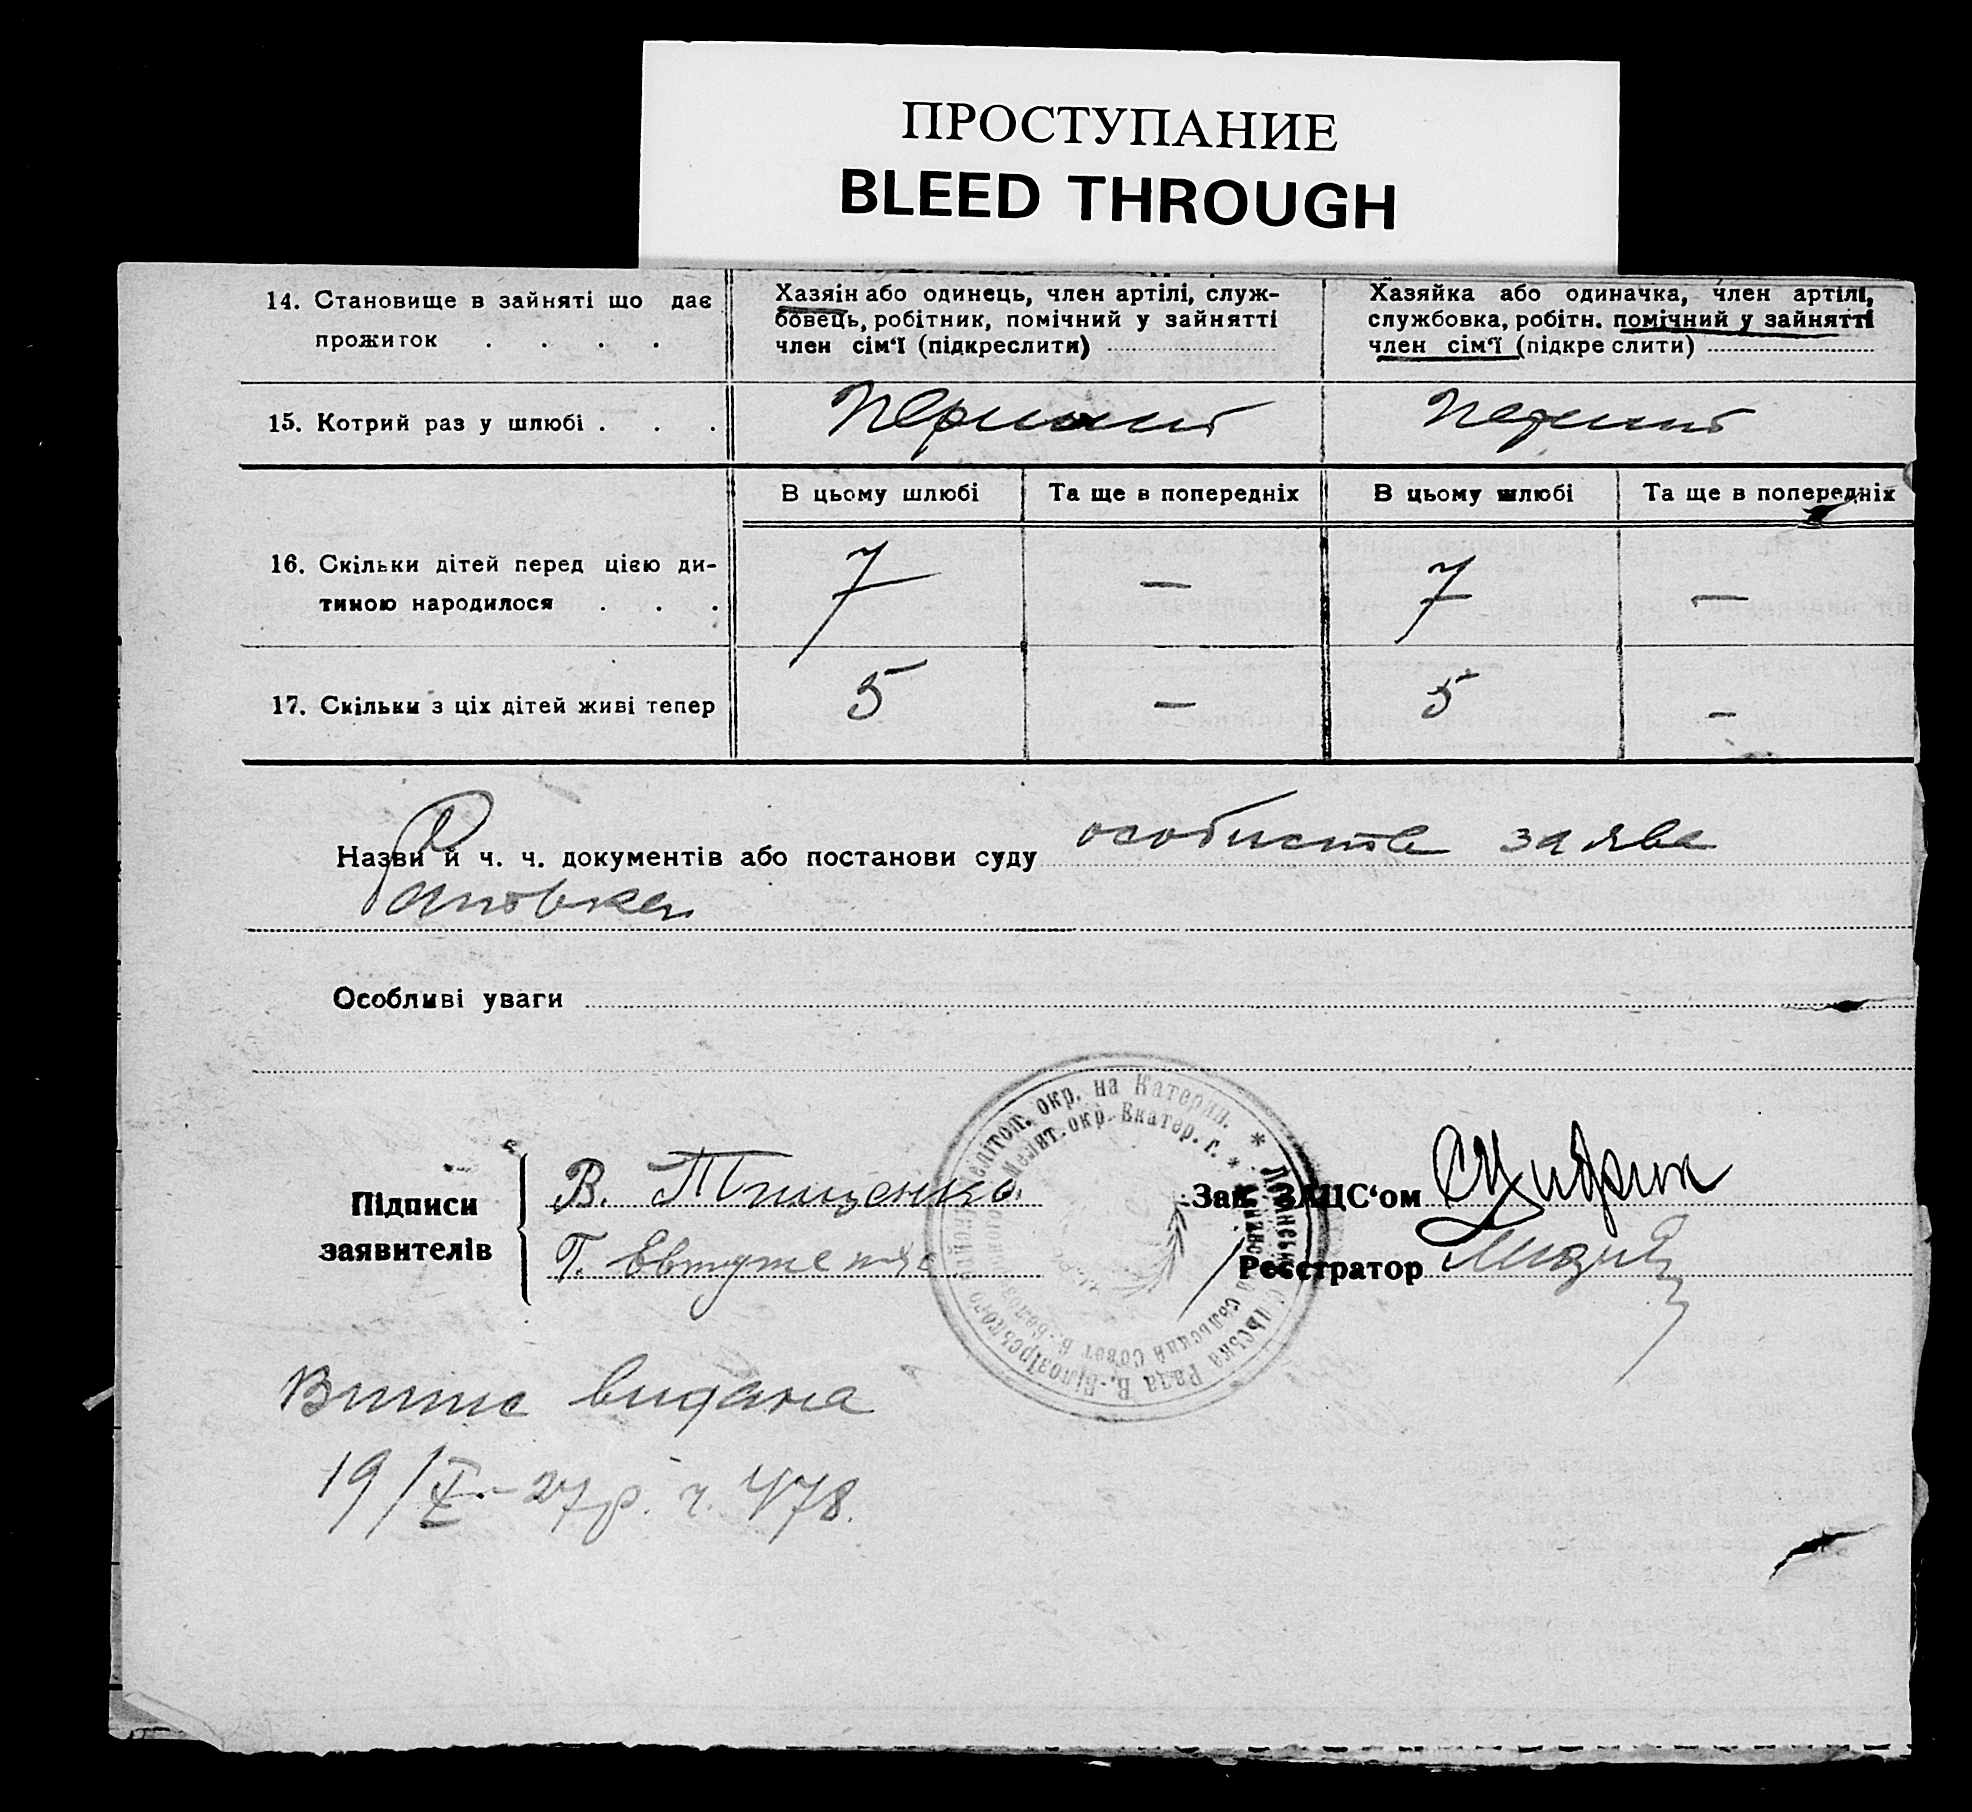 ПРОСТУПАНИЕ
BLEED THROUGH
14. Становище в зайняті що дає прожиток . . . .
Хазяін або одинець, член артілі, служ-
бовець, робітник, помічний у зайнятті
член сім‘ї (підкреслити)
Хазяйка або одиначка, член артілі,
службовка, робітн. помічний у зайнятті
член сім‘ї (підкреслити)
15. Котрий раз у шлюбі . . . перший перший
В цьому шлюбі Та ще в попередніх В цьому шлюбі Та ще в попередніх
16. Скільки дітей перед цією ди-
тиною народилося . . . 7 — 7 —
17. Скільки з ціх дітей живі тепер 5 — 5 —
Назви й ч. ч. документів або постанови суду особиста заява
Особливі уваги
Підписи
заявителів
В. Тищенко
Зав. ЗАЦС‘ом
Реєстратор
Мелітоп. окр. на Катерин. * сільська Рада В.-Білозірського району
Мелит. окр. Екатер. г. * сельский Совет В.-Белоз
Витис видана
19/X-27р. ч. 478.